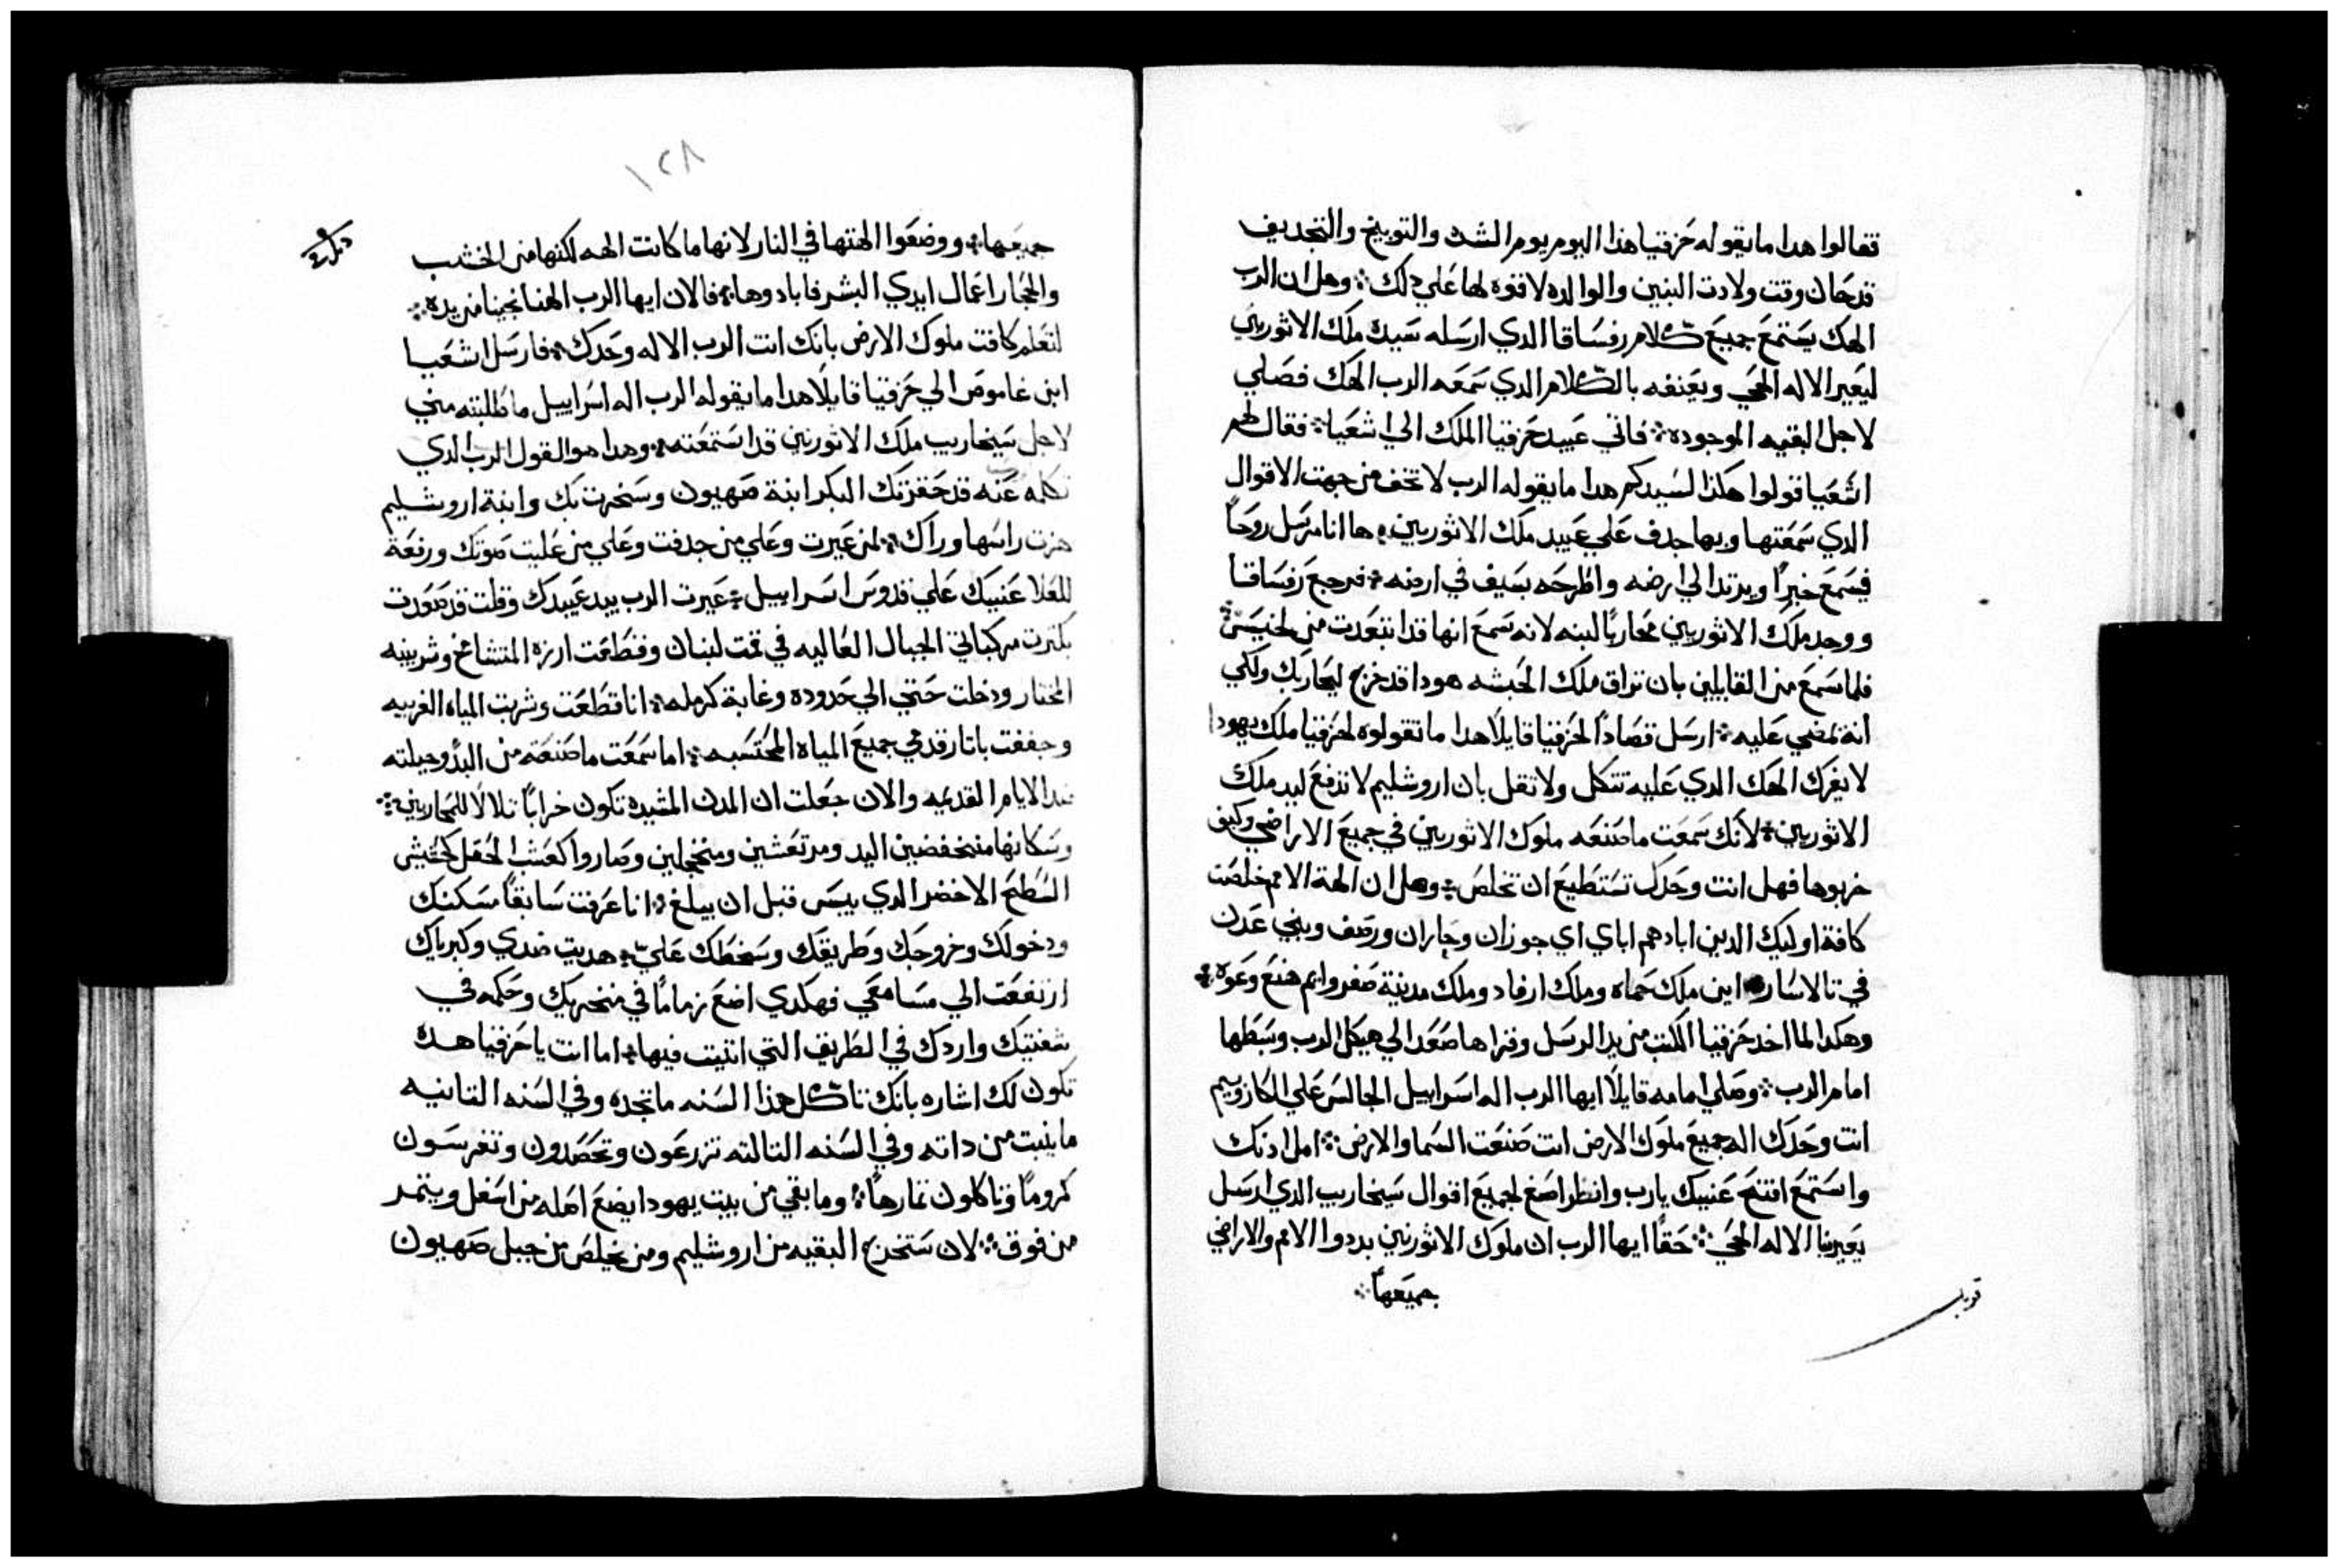 فقالوا هدا ما يقوله حزقيا هذا اليوم يوم الشده والتوبيخ والتجديف
قد حان وقت ولادت البنين والوالده لا قوه لها علي دلك ܀ وهل ان الرب
الهك يستمع جميع كلام رفساقا الدي ارسله سيده ملك الاثوريين
ليعير الاله الحي ويعنفه بالكلام الدي سمعه الرب الهك فصلي
لاجل البقيه الموجوده ܀ فاتي عبيد حزقيا الملك الي اشعيا ܀ فقال لهم
اشعيا قولوا هكذا لسيدكم هدا ما يقوله الرب لا تخف من جهت الاقوال
الدي سمعتها وبها جدف علي عبيد ملك الاثوريين ܀ ها انا مرسل روحاً
فيسمع خبراً ويرتد الي ارضه واطرحه بسيف في ارضه ܀ فرجع رفساقا
ووجد ملك الاثوريين محارباً لبنه لانه سمع انها قد ابتعدت من لخيس ܀
فلما سمع من القايلين بان تراق ملك الحبشه هودا قد خرج ليحاربك ولكي
انه يمضي عليه ܀ ارسل قصاداً لحزقيا قايلاً هدا ما تقولوه لحزقيا ملك يهودا
لا يغرك الهك الدي عليه تتكل ولا تقل بان اروشليم لا تدفع ليد ملك
الاثوريين ܀ لانك سمعت ما صنعه ملوك الاثوريين في جميع الاراضي وكيف
خربوها فهل انت وحدك تستطيع ان تخلص ܀ وهل ان الهة الامم خلصت
كافة اوليك الدين ابادهم اباي اي جوزان وحاران ورصف وبني عدن
في تالاسار اين ملك حماه وملك ارفاد وملك مدينة صفروايم هنع وعوه ܀
وهكدا لما اخد حزقيا الكتب من يد الرسل وقراها صعد الي هيكل الرب وبسطها
امام الرب ܀ وصلي امامه قايلاً ايها الرب اله اسراييل الجالس علي الكاروبيم
انت وحدك اله جميع ملوك الارض انت صنعت السما والارض ܀ امل ادنك
واستمع افتح عنييك يارب وانظر اصغ لجميع اقوال سيخاريب الدي ارسل
يعيرنا الاله الحي ܀ حقاً ايها الرب ان ملوك الاثوريين بددوا الامم والاراضي
جميعهاً ܀
قوبل
١٢٨
جميعها ܀ ووضعوا الهتها في النار لانها ما كانت الهه لكنها من الخشب
والحجار اعمال ايدي البشر فابادوها ܀ فالان ايها الرب الهنا نجينا من يده ܀
لتعلم كافت ملوك الارض بانك انت الرب الاله وحدك ܀ فارسل اشعيا
ابن غاموص الي حزقيا قايلاً هدا ما يقوله الرب اله اسراييل ما طلبته مني
لاجل سيخاريب ملك الاثوريين قد استمعته ܀ وهدا هو القول الرب الدي
تكلمه عنه قد حقرتك البكر ابنة صهيون وسخرت بك وابنة اروشليم
هزت راسها وراك ܀ لمن عيرت وعلي من جدفت وعلي من عليت صوتك ورفعة
للعلا عنييك علي قدوس اسراييل ܀ عيرت الرب بيد عبيدك وقلت قد صعدت
بكترت مركباتي الجبال العاليه في قمت لبنان وقطعت ارزه المتشامخ وشربينه
المختار ودخلت حتي الي حدوده وغابة كرمله ܀ انا قطعت وشربت المياه الغريبه
وجففت باتار قدمي جميع المياه المحتسبه ܀ اما سمعت ما صنعته من البدؤ وجبلته
منذ الايام القديمه والان جعلت ان المدن المشيده تكون خراباً تلالاً للمحاربين ܀
وسكانها منخفضين اليد ومرتعشين ومنخجلين وصاروا كعشب الحقل كحشيش
السطح الاخضر الدي يبس قبل ان يبلغ ܀ انا عرفت سابقاً مسكنك
ودخولك وخروجك وطريقك وسخطك عليّ ܀ هديت ضدي وكبرياك
ارتفعت الي مسامعي فهكدي اضع زماماً في منخريك وحكمه في
شفتيك واردك في الطريق التي اتيت فيها ܀ اما انت يا حزقيا هده
تكون لك اشاره بانك تاكل هذا السنه ما تجده وفي السنه التانيه
ما ينبت من داته وفي السنه التالته تزرعون وتحصدون وتغرسون
كروماً وتاكلون تمارهاً ܀ وما بقي من بيت يهودا يضع اصله من اسفل ويتمر
من فوق ܀ لان ستخرج البقيه من اروشليم ومن يخلص من جبل صهيون